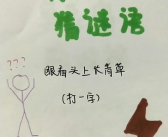 猜谜语
眼看头上长青草
(打一字)
???